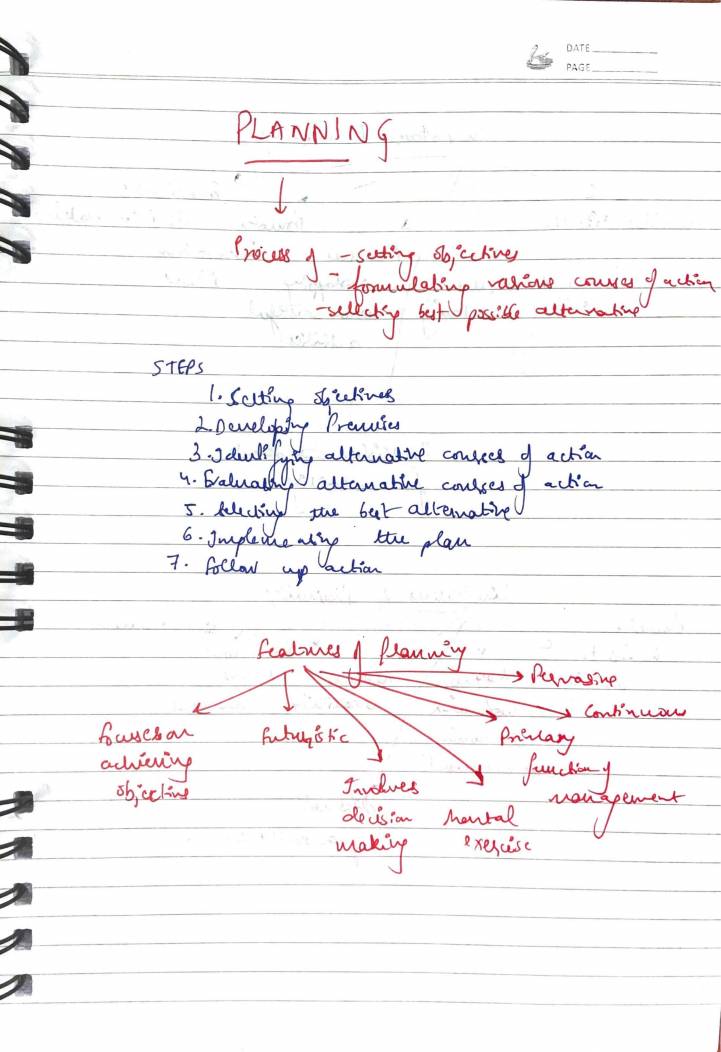 DATE
PAGE
PLANNING
Process of - setting objectives
- formulating various courses of action
- selecting best possible alternative
STEPS
1. Setting objectives
2. Developing Premises
3. Identifying alternative courses of action
4. Evaluating alternative courses of action
5. Selecting the best alternative
6. Implementing the plan
7. Follow up action
Features of Planning
Pervasive
Continuous
focuses on
achieving
objective
futuristic
Involves
decision
making
Mental
exercise
Primary
function of
management